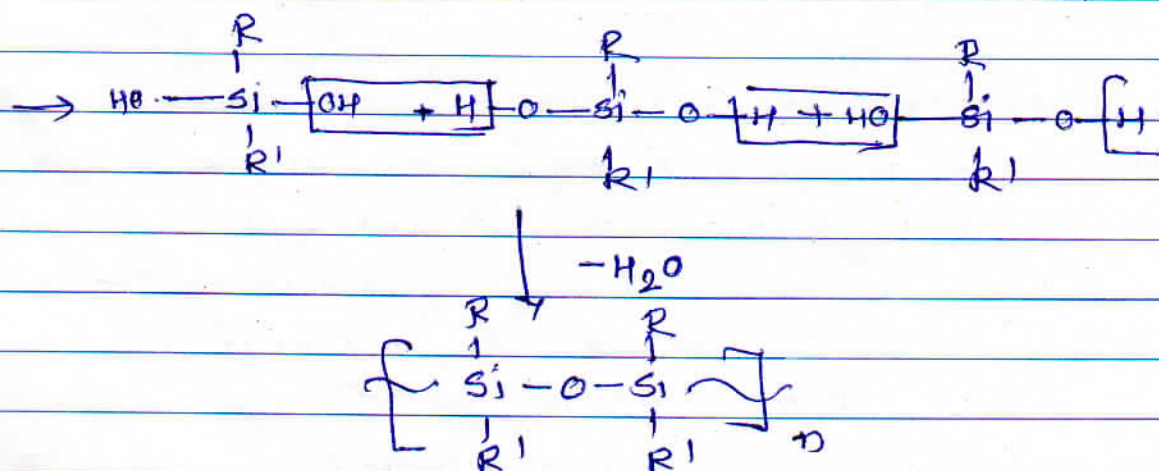 R R R
→ HO — Si — OH + H — O — Si — O — H + HO — Si — O — H
R' R' R'
↓ -H2O
R R
[~ Si — O — Si ~]n
R' R'